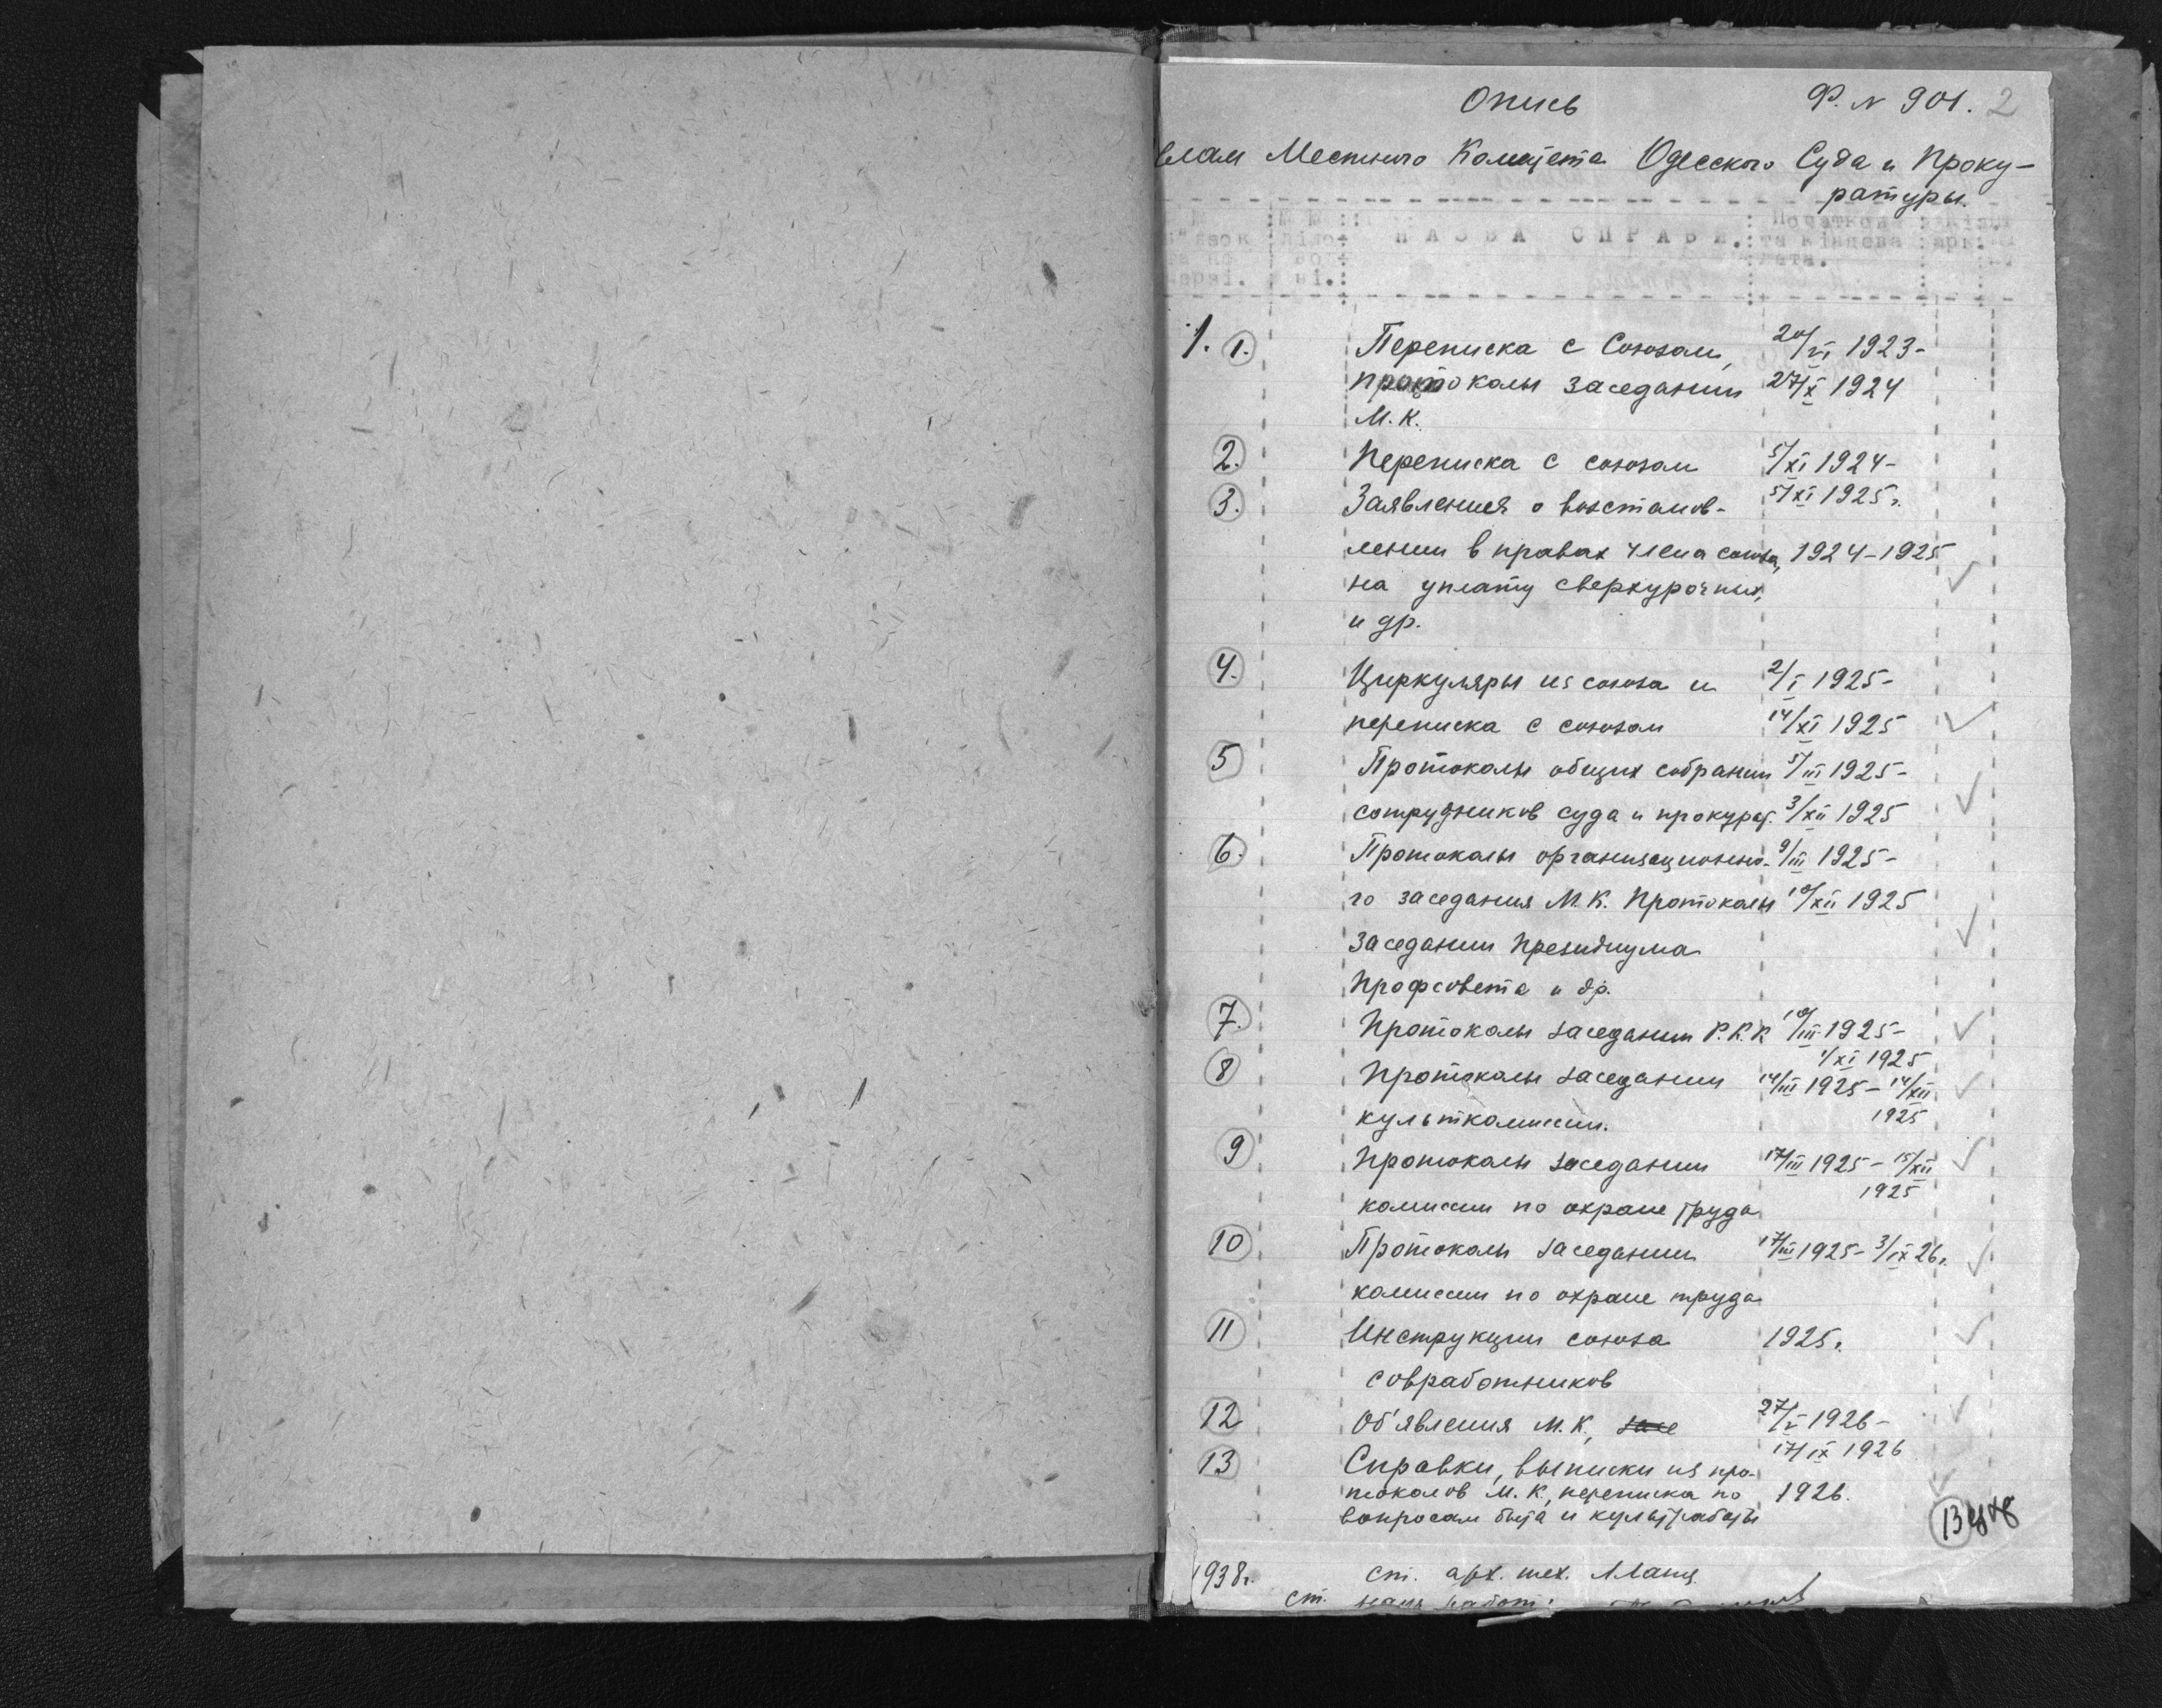 Опись Ф. N 901. 2
елам Местного Комитета Одесского Суда и Проку-
ратуры.
НАЗВА СПРАВИ. Початкова
та кінцева арк.
дата.
1. 1. Переписка с Союзом, 20/VI 1923-
протоколы заседании 27/X 1924
М.К.
2. Переписка с союзом 5/XI 1924-
3. Заявления о восстанов- 5/XI 1925г.
лении в правах члена союза, 1924-1925
на уплату сверхурочных,
и др.
4. Циркуляры из союза и 2/I 1925-
переписка с союзом 14/XI 1925
5 Протоколы общих собрании 5/III 1925-
сотрудников суда и прокурат. 3/XII 1925
6. Протоколы организационно- 9/III 1925-
го заседания М.К. Протоколы 10/XII 1925
заседании Президиума
Профсовета и др.
7. Протоколы заседании Р.К.К 10/III 1925-
1/XI 1925
8 Протоколы заседании 14/III 1925- 14/XII
культкомиссии. 1925
9 Протоколы заседании 17/III 1925- 15/XII
1925
комиссии по охране труда
10 Протоколы заседании 17/III 1925- 3/IX 26г.
комиссии по охране труда
11 Инструкции союза 1925г.
совработников
12 Об'явления М.К., засе 27/V 1926-
17/IX 1926
13 Справки, выписки из про-
токолов М.К., переписка по 1926.
вопросам быта и культработы
13
1938г. ст. арх. тех.
ст.